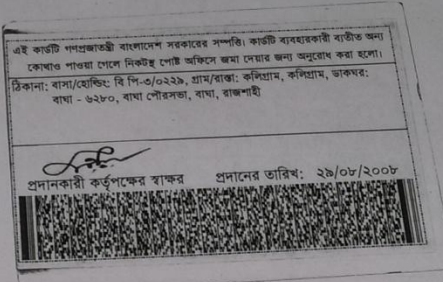 এই কার্ডটি গণপ্রজাতন্ত্রী বাংলাদেশ সরকারের সম্পত্তি। কার্ডটি ব্যবহারকারী ব্যতীত অন্য
কোথাও পাওয়া গেলে নিকটস্থ পোষ্ট অফিসে জমা দেয়ার জন্য অনুরোধ করা হলো।
ঠিকানা: বাসা/হোল্ডিং: বি পি-৩/০২২৯, গ্রাম/রাস্তা: কলিগ্রাম, কলিগ্রাম, ডাকঘর:
বাঘা - ৬২৮০, বাঘা পৌরসভা, বাঘা, রাজশাহী
প্রদানকারী কর্তৃপক্ষের স্বাক্ষর প্রদানের তারিখ: ২৯/০৮/২০০৮